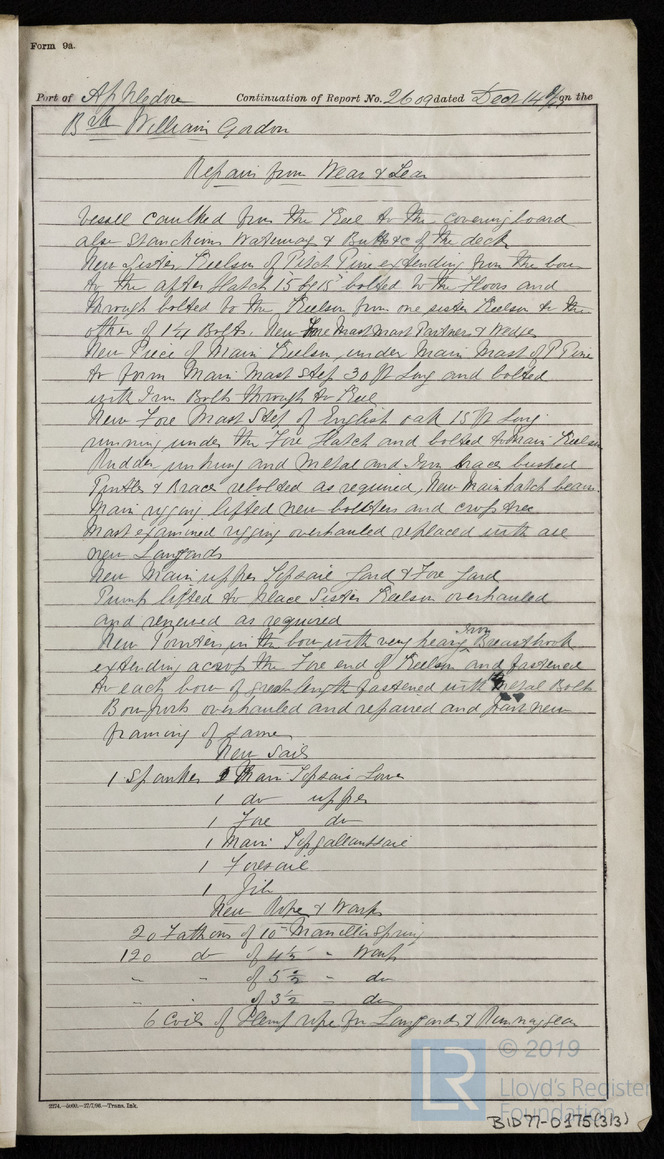 Form 9a.
Port of Appledore Continuation of Report No. 2609 dated Decr 14 on the
Bk William Gordon
Repairs from Wear & Tear
Vessell caulked from the Keel to the coveringboard
also stanchions waterway & Butts &c of the deck
New Sister Keelson of Pitch Pine extending from the bow
to the after Hatch 15 by 15 bolted to the Floors and
through bolted to the Keelson from one sister Keelson to the
other of 1¼ Bolts. New Fore Mast Mast Partners & Wedges
New Piece of Main Keelson under Main Mast of P Pine
to form Main Mast Step 30 ft long and bolted
with Iron Bolts through to Keel
New Fore Mast Step of English oak 15 ft long
running under the Fore Hatch and bolted to Main Keelson
Rudder unhung and Metal and Iron braces bushed
Pintles & Braces rebolted as required, New Main hatch beam.
Main rigging lifted new bolsters and cross tree
Mast examined rigging overhauled replaced with all
new Lanyards
New Main upper Topsail Yard & Fore Yard
Pump lifted to place Sister Keelson overhauled
and renewed as required
New Pointers in the bow with very heavy Iron Breasthook
extending across the Fore end of Keelson and fastened
to each bow of great length fastened with Metal Bolts
Bow ports overhauled and repaired and part new
framing of same
New Sails
1 Spanker 1 Main Topsail Lower
1 do upper
1 Fore do
1 Main Topgallantsail
1 Foresail
1 Jib
New Rope & Warps
20 Fathoms of 10 Manilla Spring
120 do of 4½ " Warp
" " of 5½ " do
" " of 3½ " do
6 Coils of Hemp rope for Lanyards & Running gear
2274.—5000.—27/7/98.—Trans. Ink.
LR
© 2019
Lloyd's Register
Foundation
BID77-0175(3/3)